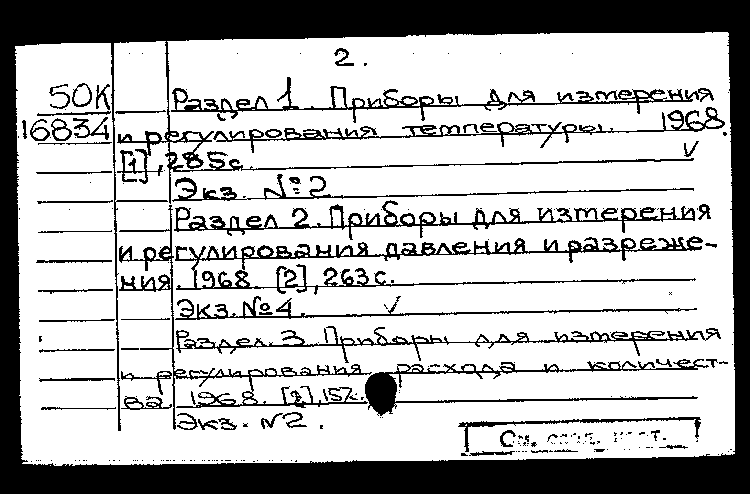 2.
50К
16834
Раздел 1. Приборы для измерения
и регулирования температуры. 1968.
[1], 285с
Экз. №2
Раздел 2. Приборы для измерения
и регулирования давления и разреже-
ния. 1968. [2], 263с.
Экз. №4.
Раздел. 3 Приборы для измерения
и регулирования расхода и количест-
ва 1968.
Экз. №2.
См. след.